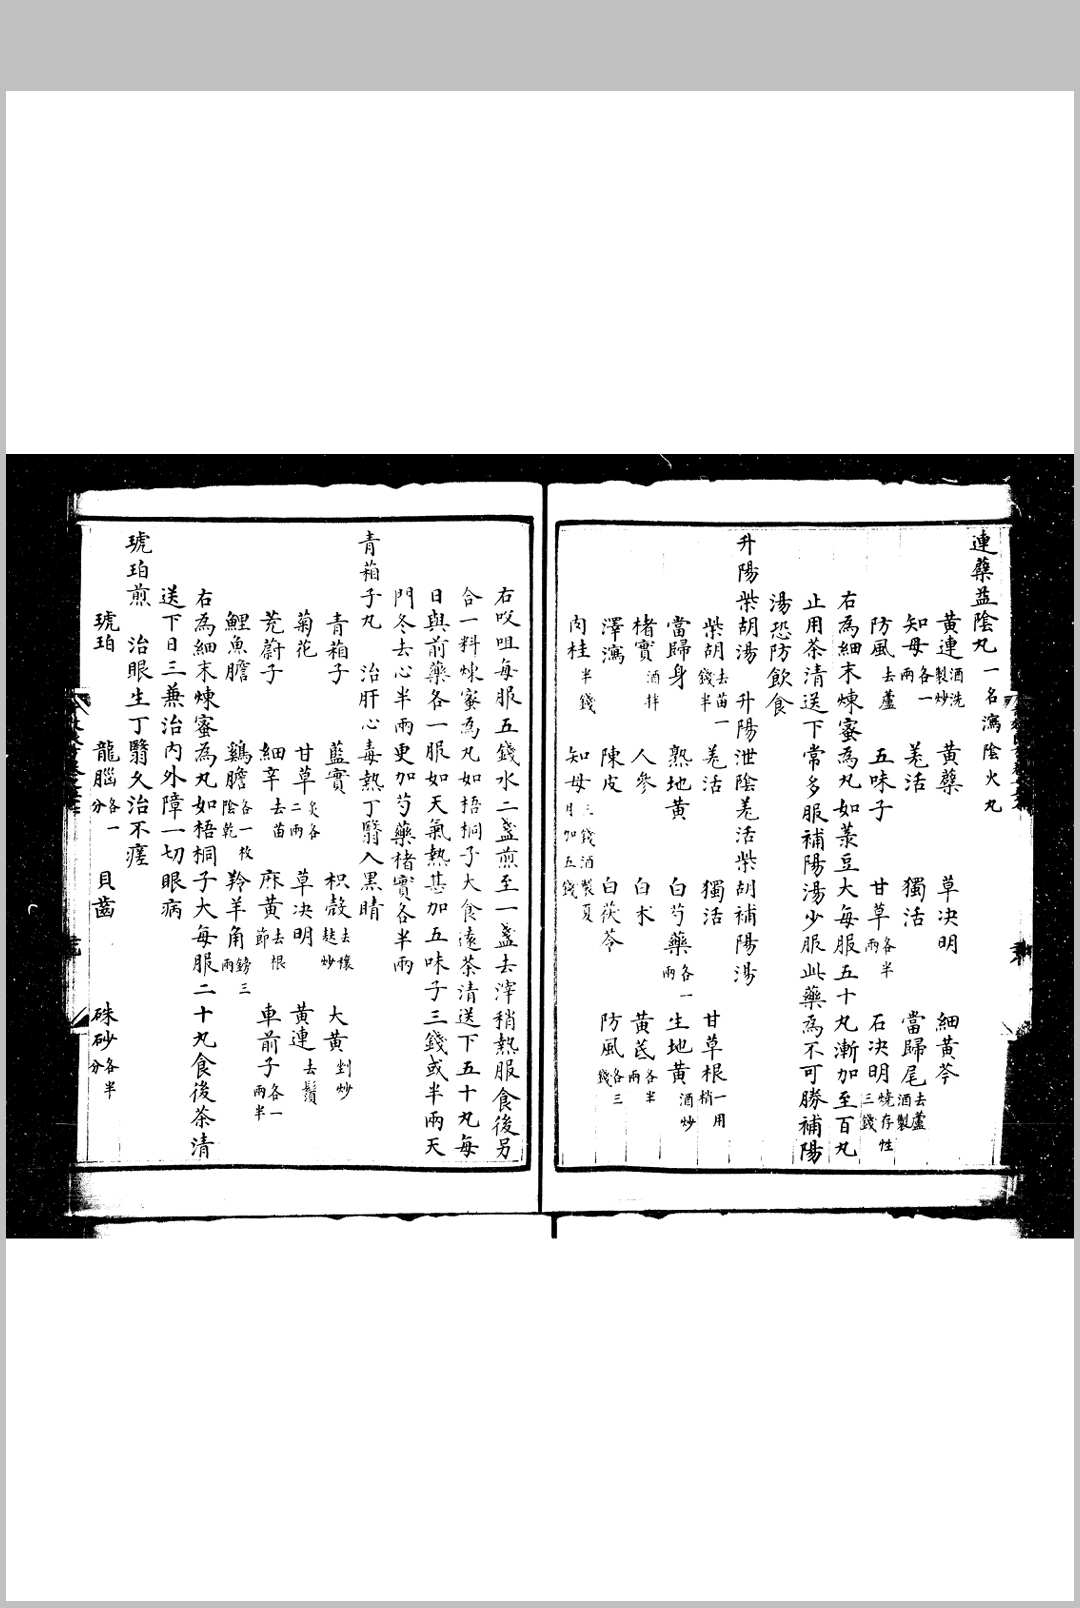 連蘗益陰丸一名瀉陰火丸
黃連酒洗製炒 黃蘗 草决明 細黃芩
知母各一兩 羗活 獨活 當歸尾去蘆酒製
防風去蘆 五味子 甘草各半兩 石决明燒存性三錢
右為細末煉蜜為丸如菉豆大每服五十丸漸加至百丸
止用茶清送下常多服補陽湯少服此藥為不可勝補陽
湯恐防飲食
升陽柴胡湯 升陽泄陰羗活柴胡補陽湯
柴胡去苗一錢半 羗活 獨活 甘草根一用梢
當歸身 熟地黃 白芍藥各一兩 生地黃酒炒
楮實酒拌 人參 白朮 黃芪各半兩
澤瀉 陳皮 白茯苓 防風各三錢
肉桂半錢 知母三錢酒製夏月加五錢
右㕮咀每服五錢水二盞煎至一盞去滓稍熱服食後另
合一料煉蜜為丸如梧桐子大食遠茶清送下五十丸每
日與前藥各一服如天氣熱甚加五味子三錢或半兩天
門冬去心半兩更加芍藥楮實各半兩
青葙子丸 治肝心毒熱丁翳入黑睛
青葙子 藍實 枳殼去穰麸炒 大黃剉炒
菊花 甘草炙各二兩 草决明 黃連去鬚
茺蔚子 細辛去苗 麻黃去根節 車前子各一兩半
鯉魚膽 鷄膽各一枚陰乾 羚羊角鎊三兩
右為細末煉蜜為丸如梧桐子大每服二十丸食後茶清
送下日三兼治內外障一切眼病
琥珀煎 治眼生丁翳久治不瘥
琥珀 龍腦各一分 貝齒 硃砂各半分